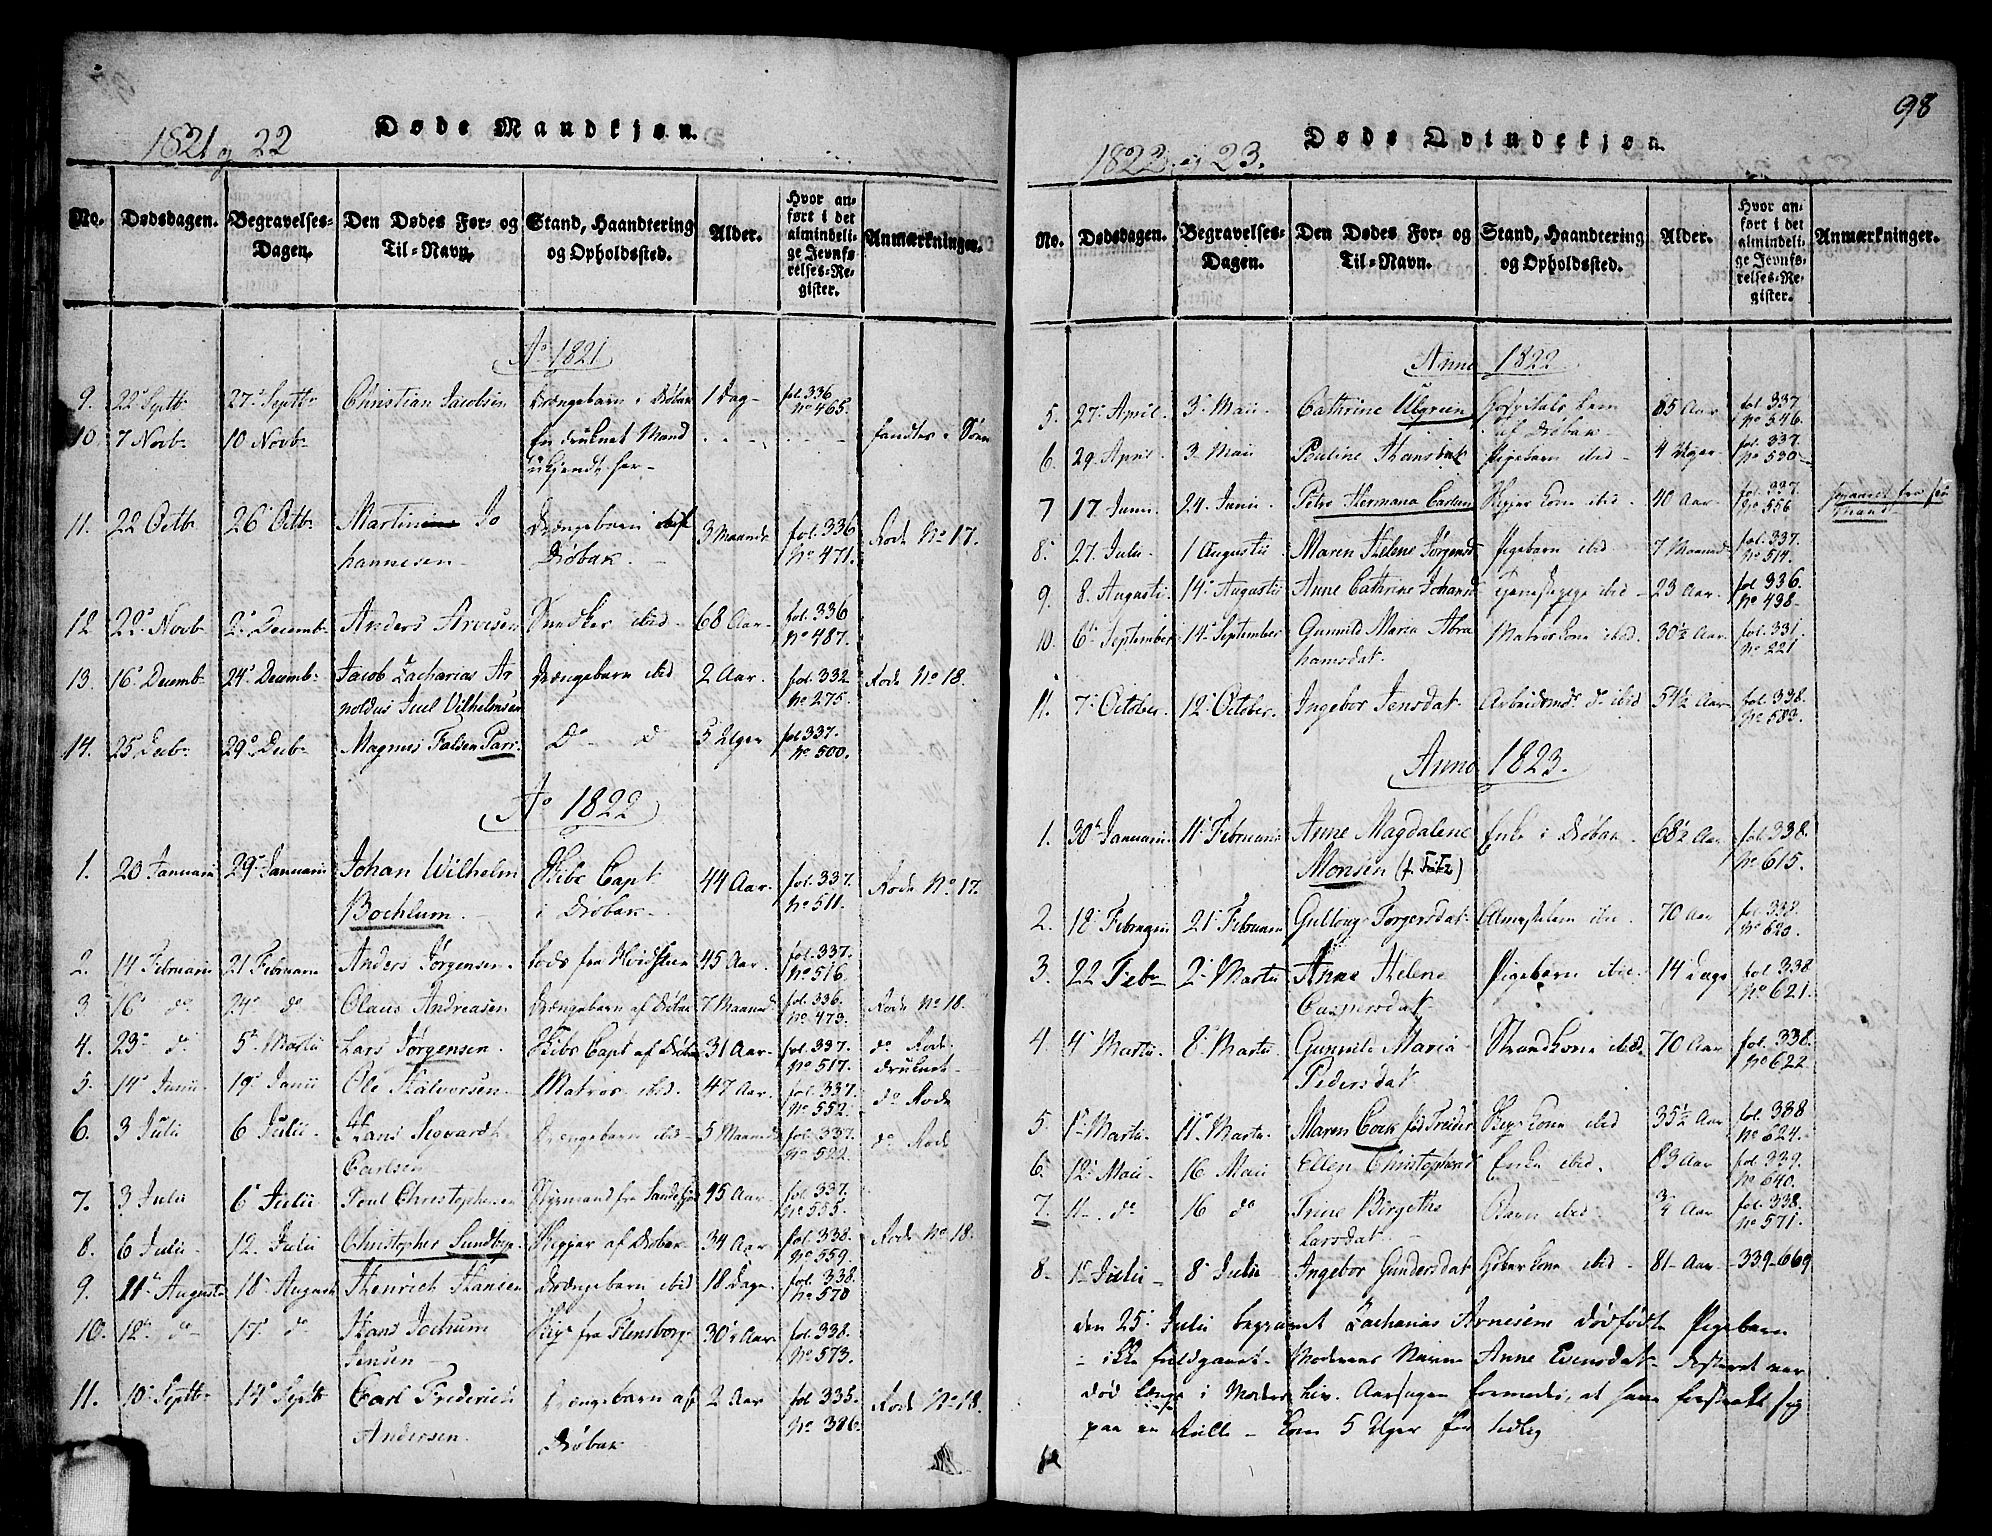 98
1821 og 22
Døde Mandkjøn.
No. Dødsdagen. Begravelses-Dagen. Den Dødes For- og Til-Navn. Stand, Haandtering og Opholdssted. Alder. Hvor anført i det almindelige Jevnførelses-Register. Anmærkninger.
Ao 1821
9. 22 Septbr 27 Septbr Christian Jacobsen Drængebarn i Drøbak 1 Dag fol. 336 No 465.
10. 7 Novbr 10 Novbr En druknet Mand fandtes i Søen
ukjendt her
11. 22 Octbr 26 Octbr Martin Jo Drængebarn af 3 Maaneder fol. 336 Rode No 17.
hannesen Drøbak No 471.
12 22 Novbr 2 Decembr Anders Arvesen ibid 68 Aar fol. 336 No 487.
13. 16 Decembr 24 Decembr Jacob Zacharias Ar Drængebarn ibid 2 Aar fol. 332 Rode No 18.
noldus Juel Vilhelmsen No 275.
14. 25 Decbr 29 Decbr Magnus Falsen Parr Do Do 5 Uger fol 337. No 500.
Ao 1822
1. 20 Januarii 29 Januarii Johan Wilhelm Skibs Capt 44 Aar fol. 337. Rode No 17.
Bochlum i Drøbak No 511.
2. 14 Februarii 21 Februarii Anders Jørgensen Lods fra Hvidsten 45 Aar fol. 337. No 516.
3 16 do 24 do Olaus Andreasen Drængebarn af Drøbak 7 Maaned fol. 336. No 473. Rode No 18.
4. 23 do 5 Martii Lars Jørgensen Skibs Capt af Drøbak 31 Aar fol. 337. No 517. do Rode
5. 14 Junii 19 Junii Ole Halvorsen Matros ibid 47 Aar fol. 337. No 552. druknet do Rode
6. 3 Julii 6 Julii Hans Segvardt Drængebarn ibid 5 Maaned fol. 337. do Rode
Carlsen No 522.
7. 3 Julii 6 Julii Poul Christophersen Styrmand fra Sandefjord 45 Aar fol. 337. No 555.
8. 6 Julii 12 Julii Christopher Sundbye Skipper af Drøbak 34 Aar fol. 338. No 559. Rode No 18.
9. 11 Augusti 18 August Henrich Hansen Drængebarn ibid 18 Dage fol. 338. No 570
10. 12 do 17 do Hans Jochum fra Flensborg 30½ Aar fol. 338.
Jensen No 573.
11. 10 Septbr 14 Septbr Carl Frederich Drængebarn af 2 Aar fol 335. Rode No 18.
Andersen Drøbak No 386.
1822 og 23.
Døde Qvindekjøn.
No. Dødsdagen. Begravelses-Dagen. Den Dødes For- og Til-Navn. Stand, Haandtering og Opholdssted. Alder. Hvor anført i det almindelige Jevnførelses-Register. Anmærkninger.
Anno 1822
5. 27 April 3 Maii Cathrine Ulgreen Hospitals Lem 85 Aar fol. 337.
af Drøbak No 546.
6 29 April 3 Maii Pauline Hansdat Pigebarn ibid 4 Uger fol. 337. No 530
7 17 Junii 24 Junii Petro Hermana Carlsen Kone ibid 40 Aar fol. 337. No 556 separeret fra sin Mand
8. 27 Julii 1 Augustii Maren Helene Jørgensd Pigebarn ibid 7 Maaned fol. 337. No 514.
9. 8 Augusti 14 Augusti Anne Cathrine Johansd Tjenestepige ibid 23 Aar fol 336. No 438
10. 6 September 14 September Gunnild Maria Abra Matros Kone ibid 30½ Aar fol. 331.
hamsdat. No 221
11. 7 October 12 October. Ingebor Jensdat Arbeidsmds do ibid 54½ Aar fol. 338. No 583.
Anno 1823.
1. 30 Januarii 11 Februarii Anne Magdalene Enke i Drøbak 68½ Aar fol. 338.
Monsen (f. Fritz) No 615.
2. 18 Februarii 21 Februarii Gullaug Torgersdat Almisselem ibid 70 Aar fol. 338. No 620.
3. 22 Febr 2 Martii Anne Helene Pigebarn ibid 14 Dage fol. 338
Casmersdat No 621.
4 4 Martii 8 Martii Gunnild Maria Kone ibid 70 Aar fol. 338.
Pedersdat No 622.
5. 1 Martii 11 Martii Maren Cock fød Kone ibid 35½ Aar fol. 338 No 624.
6. 12 Maii 16 Maii Ellen Christophersd Enke ibid. 83 Aar fol. 339. No 640.
7. 11 do 16 do Trine Birgethe Barn ibid ¾ Aar fol. 338.
Larsdat No 571.
8. 1 Julii 8 Julii Ingebor Gundersdat Kone ibid 81 Aar 339-669
den 25 Julii begravet Zacharias Arnesens dødfødte Pigebarn
ikke fuldgaaet. Moderens Navn Anne Esensdat. Fosteret var
død længe i Moders Liv. Aarsagen formodes, at hun forstrakte sig
paa en Rulle. Kom 5 Uger for tidlig